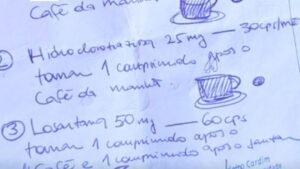 Café da manhã
② Hidroclorotiazida 25mg — 30cps/mês
tomar 1 comprimido após o
Café da manhã
③ Losartana 50mg — 60cps
tomar 1 comprimido após o
Café e 1 comprimido após o jantar
Cardim